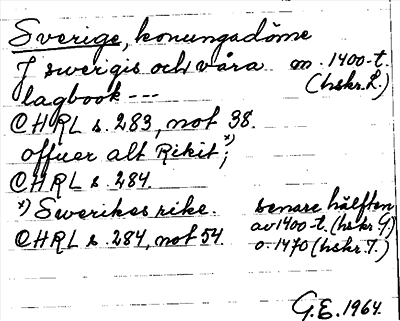 Sverige, konungadöme
J swergis och våra m. 1400-t.
lagbook --- (hskr. L.)
CHRL s. 283, not 38.
offuer alt Rikit *);
CHRL s. 284.
*) Swerikes rike. senare hälften
av 1400-t. (hskr G.)
CHRL s. 284, not 54. o. 1470 (hskr. T.)
G.E. 1964.